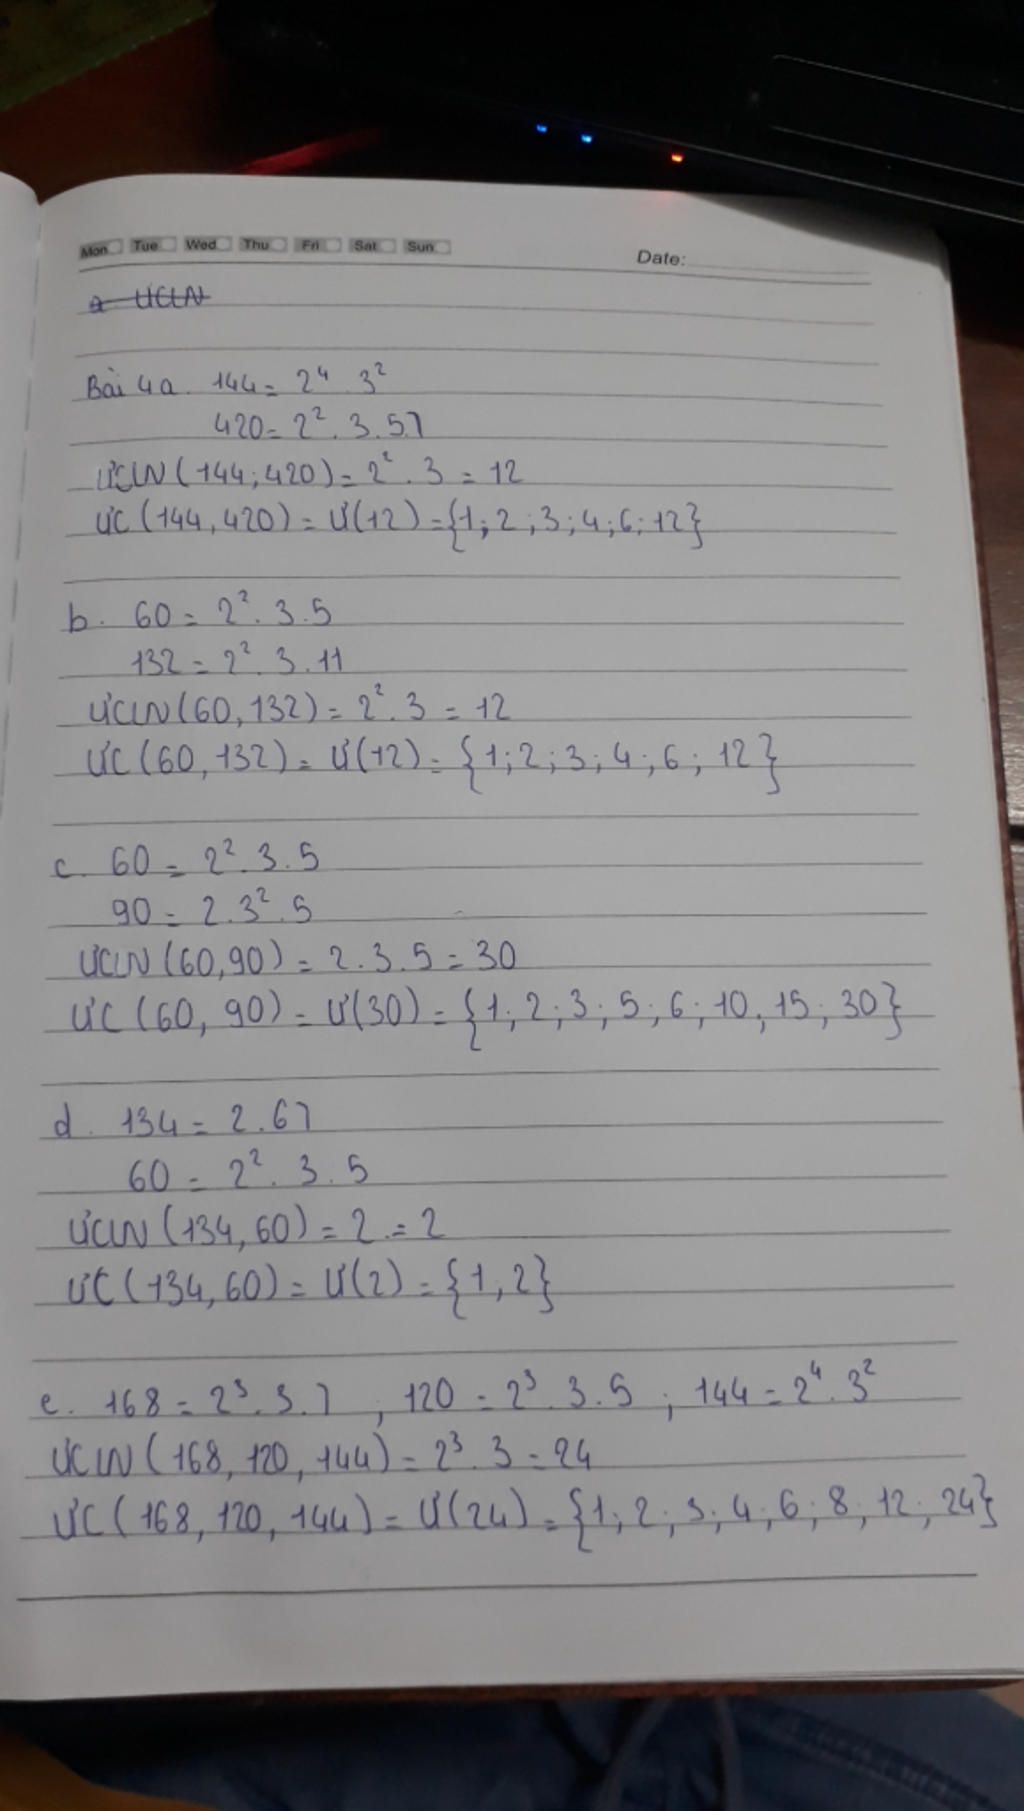 Mon Tue Wed Thu Fri Sat Sun
Date:
a. ƯCLN
Bài 4a. 144 = 2⁴. 3²
420 = 2². 3. 5.7
ƯCLN (144; 420) = 2². 3 = 12
ƯC (144, 420) = Ư(12) = {1; 2; 3; 4; 6; 12}
b. 60 = 2². 3. 5
132 = 2². 3. 11
ƯCLN (60, 132) = 2². 3 = 12
ƯC (60, 132) = Ư(12) = {1; 2; 3; 4; 6; 12}
c. 60 = 2². 3. 5
90 = 2. 3². 5
ƯCLN (60, 90) = 2. 3. 5 = 30
ƯC (60, 90) = Ư(30) = {1; 2; 3; 5; 6; 10, 15; 30}
d. 134 = 2. 67
60 = 2². 3. 5
ƯCLN (134, 60) = 2 = 2
ƯC (134, 60) = Ư(2) = {1, 2}
e. 168 = 2³. 3. 7 ; 120 = 2³. 3. 5 ; 144 = 2⁴. 3²
ƯCLN (168, 120, 144) = 2³. 3 = 24
ƯC (168, 120, 144) = Ư(24) = {1; 2; 3; 4; 6; 8; 12; 24}